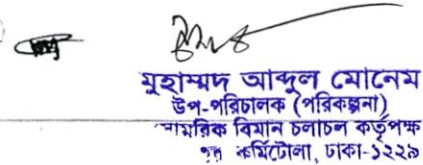 মুহাম্মদ আব্দুল মোনেম
উপ-পরিচালক (পরিকল্পনা)
বিমান চলাচল কর্তৃপক্ষ
কুর্মিটোলা, ঢাকা-১২২৯